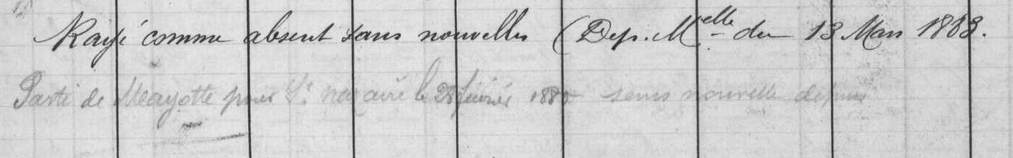 Rayé comme absent sans nouvelles (Dep. Melle du 13 Mars 1883.
Parti de Mayotte pour St nazaire le 28 février 1880 sans nouvelle depuis